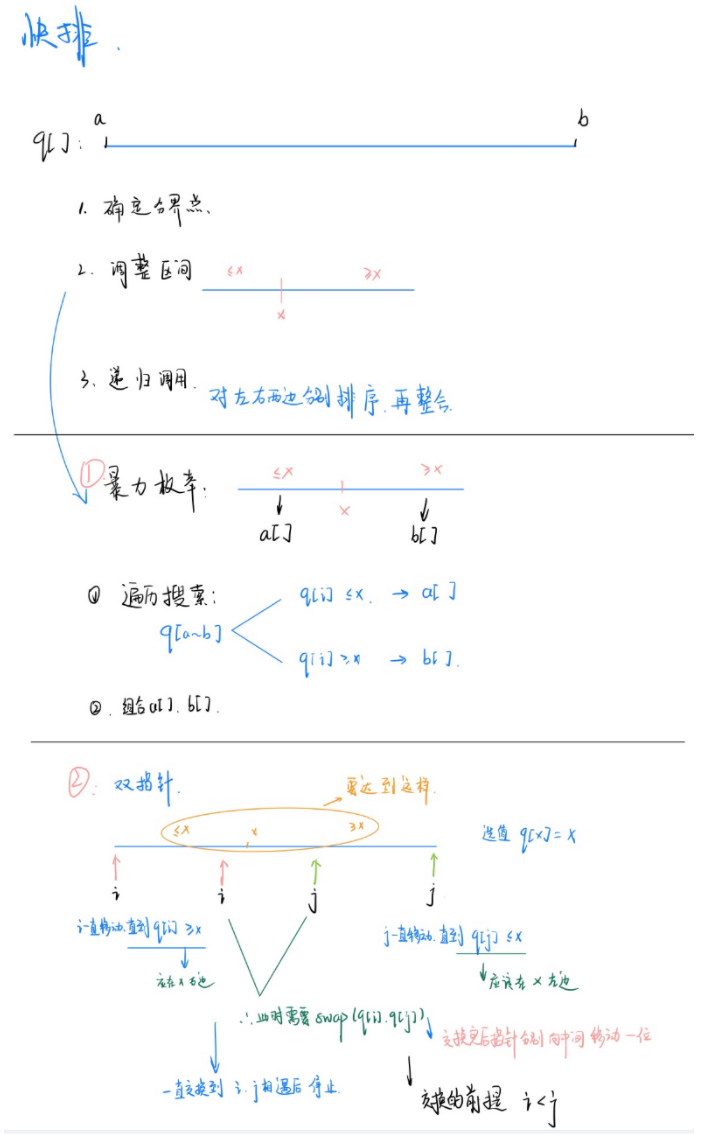 快排.
a
b
q[]:
1. 确定分界点.
2. 调整区间
≤x
≥x
x
3. 递归调用.
对左右两边分别排序.再整合.
① 暴力枚举:
≤x
≥x
x
a[]
b[]
① 遍历搜索:
q[a~b]
q[i] ≤x. → a[]
q[i] ≥x → b[].
② . 组合a[]. b[].
②: 双指针.
要达到这样.
≤x
x
≥x
选值 q[x]=x
i
i
j
j
i一直移动.直到q[i] ≥x
应在x右边
j一直移动.直到q[j] ≤x
应该在x左边
∴此时需要swap(q[i].q[j])
交换完后指针分别向中间移动一位
一直交换到 i.j相遇后停止.
交换的前提 i<j